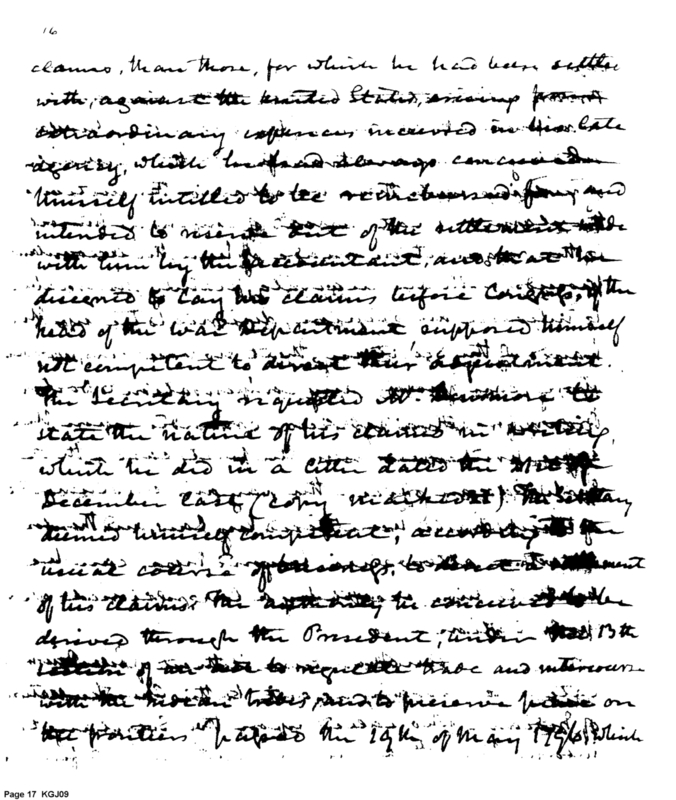 16
claims, than those, for which he had been settled
with, against the United States, arising from
extraordinary expences incurred in his late
agency, which he had always conceived
himself intitled to be reimbursed for, and
intended to out of the settlement made
with him by the accountant, and that he
desired to lay his claims before Congress, if the
head of the War Department supposed himself
not competent to direct their adjustment.
The Secretary requested Mr.
state the nature of his claims in writing,
which he did in a letter dated the
December last (copy marked ). The Secretary
deemed himself competent, according to the
usual course of business, to direct a settlement
of his claims. The authority he conceived to be
derived through the President, under the 13th
section of an act to regulate trade and intercourse
with the Indian tribes, and to preserve peace on
the frontiers passed the 19th of May 1796, which
Page 17 KGJ09